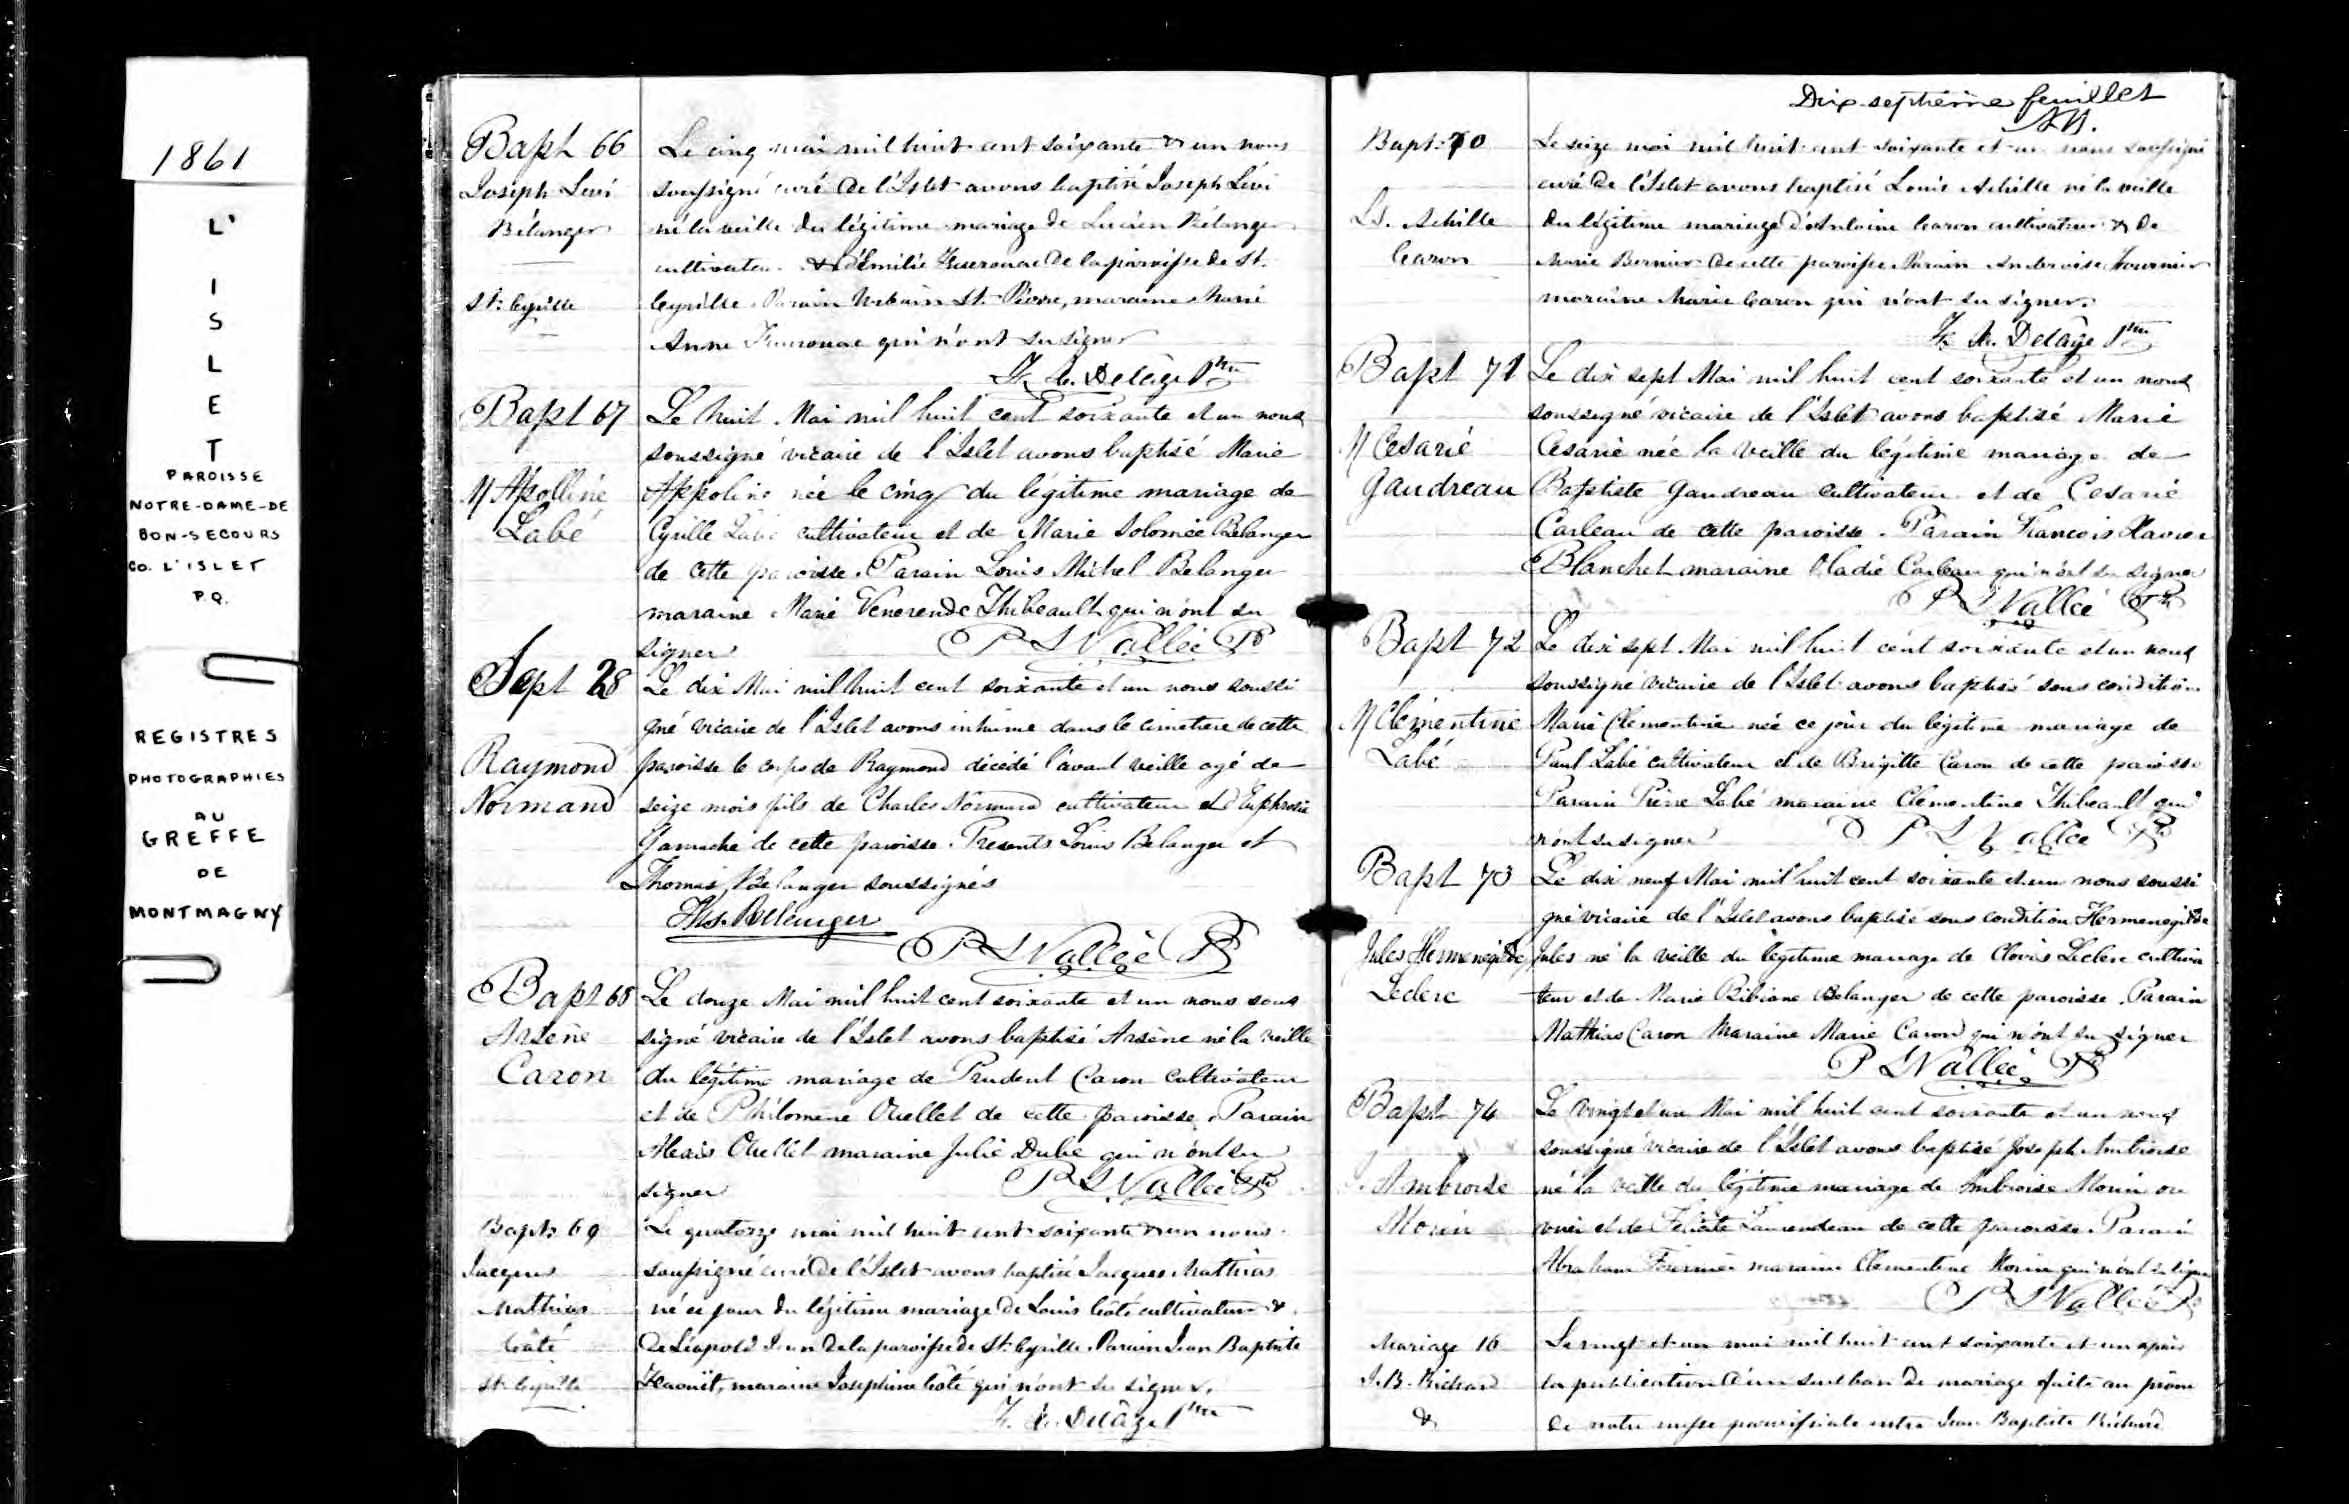 1861
L'
I
S
L
E
T
PAROISSE
NOTRE-DAME-DE
BON-SECOURS
CO. L'ISLET
P.Q.
REGISTRES
PHOTOGRAPHIES
AU
GREFFE
DE
MONTMAGNY
Bapt 66
Joseph Levi
Bélanger
St. Cyrille
Le cinq mai mil huit cent soixante & un nous
soussigné curé de l'Islet avons baptisé Joseph Lévi
né la veille du légitime mariage de Lucien Bélanger
cultivateur & d'Emilie de la paroisse de St.
Cyrille. Parain Urbain St. Pierre, maraine Marie
Anne qui n'ont su signer
Delâge Ptre
Bapt 67
M Apolline
Labé
Le huit Mai mil huit cent soixante et un nous
soussigné vicaire de l'Islet avons baptisé Marie
Appoline née le cinq du légitime mariage de
Cyrille Labé cultivateur et de Marie Solomée Belanger
de cette paroisse. Parain Louis Michel Belanger
maraine Marie Venerende Thibeault qui n'ont su
signer P S Vallée Ptr
Sept 28
Raymond
Normand
Le dix Mai mil huit cent soixante et un nous soussi
gné vicaire de l'Islet avons inhumé dans le cimetiere de cette
paroisse le corps de Raymond décédé l'avant veille agé de
seize mois fils de Charles Normand cultivateur et d'Euphrosie
Gamache de cette paroisse. Presents Louis Belanger et
Thomas Belanger soussignés
Ths. Bélanger
P S Vallée Ptr
Bapt 68
Arsène
Caron
Le douze Mai mil huit cent soixante et un nous sous
signé vicaire de l'Islet avons baptisé Arsène né la veille
du légitime mariage de Prudent Caron Cultivateur
et de Philomene Ouellet de cette paroisse. Parain
Alexis Ouellet maraine Julie Dubé qui n'ont su
signer P S Vallée Ptr
Bapt. 69
Jacques
Mathias
Côté
St. Cyrille
Le quatorze mai mil huit cent soixante & un nous
soussigné curé de l'Islet avons baptisé Jacques Mathias
né ce jour du légitime mariage de Louis Côté cultivateur &
de Léopold Jean de la paroisse de St. Cyrille. Parain Jean Baptiste
maraine Josephine Côté qui n'ont su signer.
Delâge Ptre
Dix-septième feuillet
Bapt. 70
Ls. Achille
Caron
Le seize mai mil huit cent soixante et un nous soussigné
curé de l'Islet avons baptisé Louis Achille né la veille
du légitime mariage d'Antoine Caron cultivateur & de
Marie Bernier de cette paroisse. Parain Ambroise Fournier
maraine Marie Caron qui n'ont su signer.
Delâge Ptre
Bapt 71
M Cesarie
Gaudreau
Le dix sept Mai mil huit cent soixante et un nous
soussigné vicaire de l'Islet avons baptisé Marie
Cesarie née la veille du légitime mariage de
Baptiste Gaudreau Cultivateur et de Cesarie
Carleau de cette paroisse. Parain Francois Xavier
Blanchet maraine Carleau qui n'ont su signer
P S Vallée Ptr
Bapt 72
M Clémentine
Labé
Le dix sept Mai mil huit cent soixante et un nous
soussigné vicaire de l'Islet avons baptisé sous condition
Marie Clementine née ce jour du légitime mariage de
Paul Labé cultivateur et de Brigitte Caron de cette paroisse
Parain Pierre Labé maraine Clementine Thibeault qui
n'ont su signer P S Vallée Ptr
Bapt 73
Jules Hermenegilde
Leclerc
Le dix neuf Mai mil huit cent soixante et un nous soussi
gné vicaire de l'Islet avons baptisé sous condition Hermenegilde
Jules né la veille du légitime mariage de Clovis Leclerc cultiva
teur et de Marie Bibiane Belanger de cette paroisse. Parain
Mathias Caron Maraine Marie Caron qui n'ont su signer
P S Vallée Ptr
Bapt 74
Ambroise
Morin
Le vingt et un Mai mil huit cent soixante et un nous
soussigné vicaire de l'Islet avons baptisé Joseph Ambroise
né la veille du légitime mariage de Ambroise Morin ou
vrier et de Felicité Laurendeau de cette paroisse. Parain
Abraham Fournier maraine Clementine Morin qui n'ont su signer
P S Vallée Ptr
Mariage 16
J. B. Richard
&
Le vingt et un mai mil huit cent soixante et un après
la publication d'un seul ban de mariage faite au prône
de notre messe paroissiale entre Jean Baptiste Richard